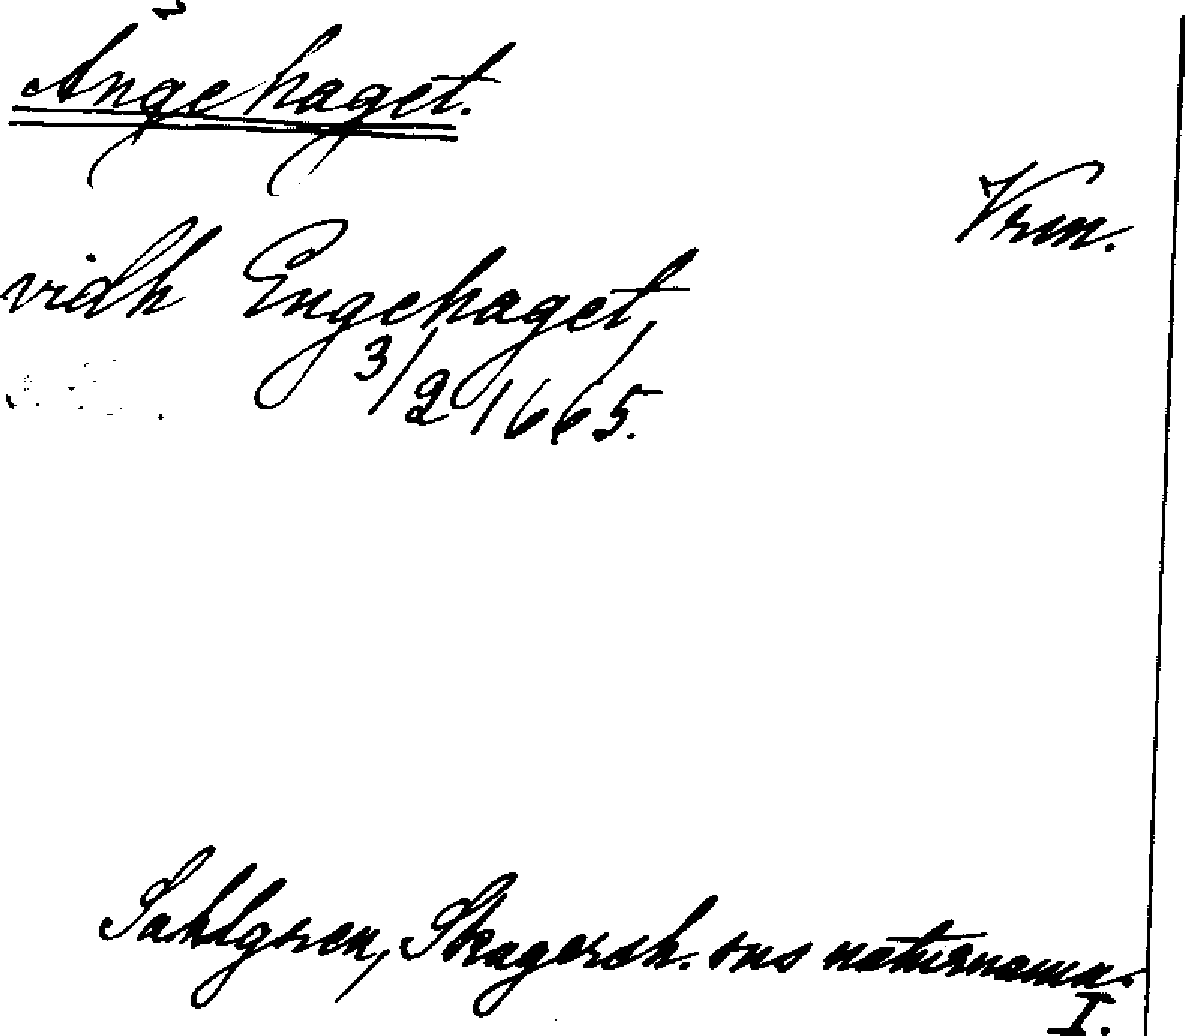 Ängehaget.
Vrm.
vidh Engehaget,
3/2 1665.
Sahlgren, Skagersh. sns naturnamn.
I.